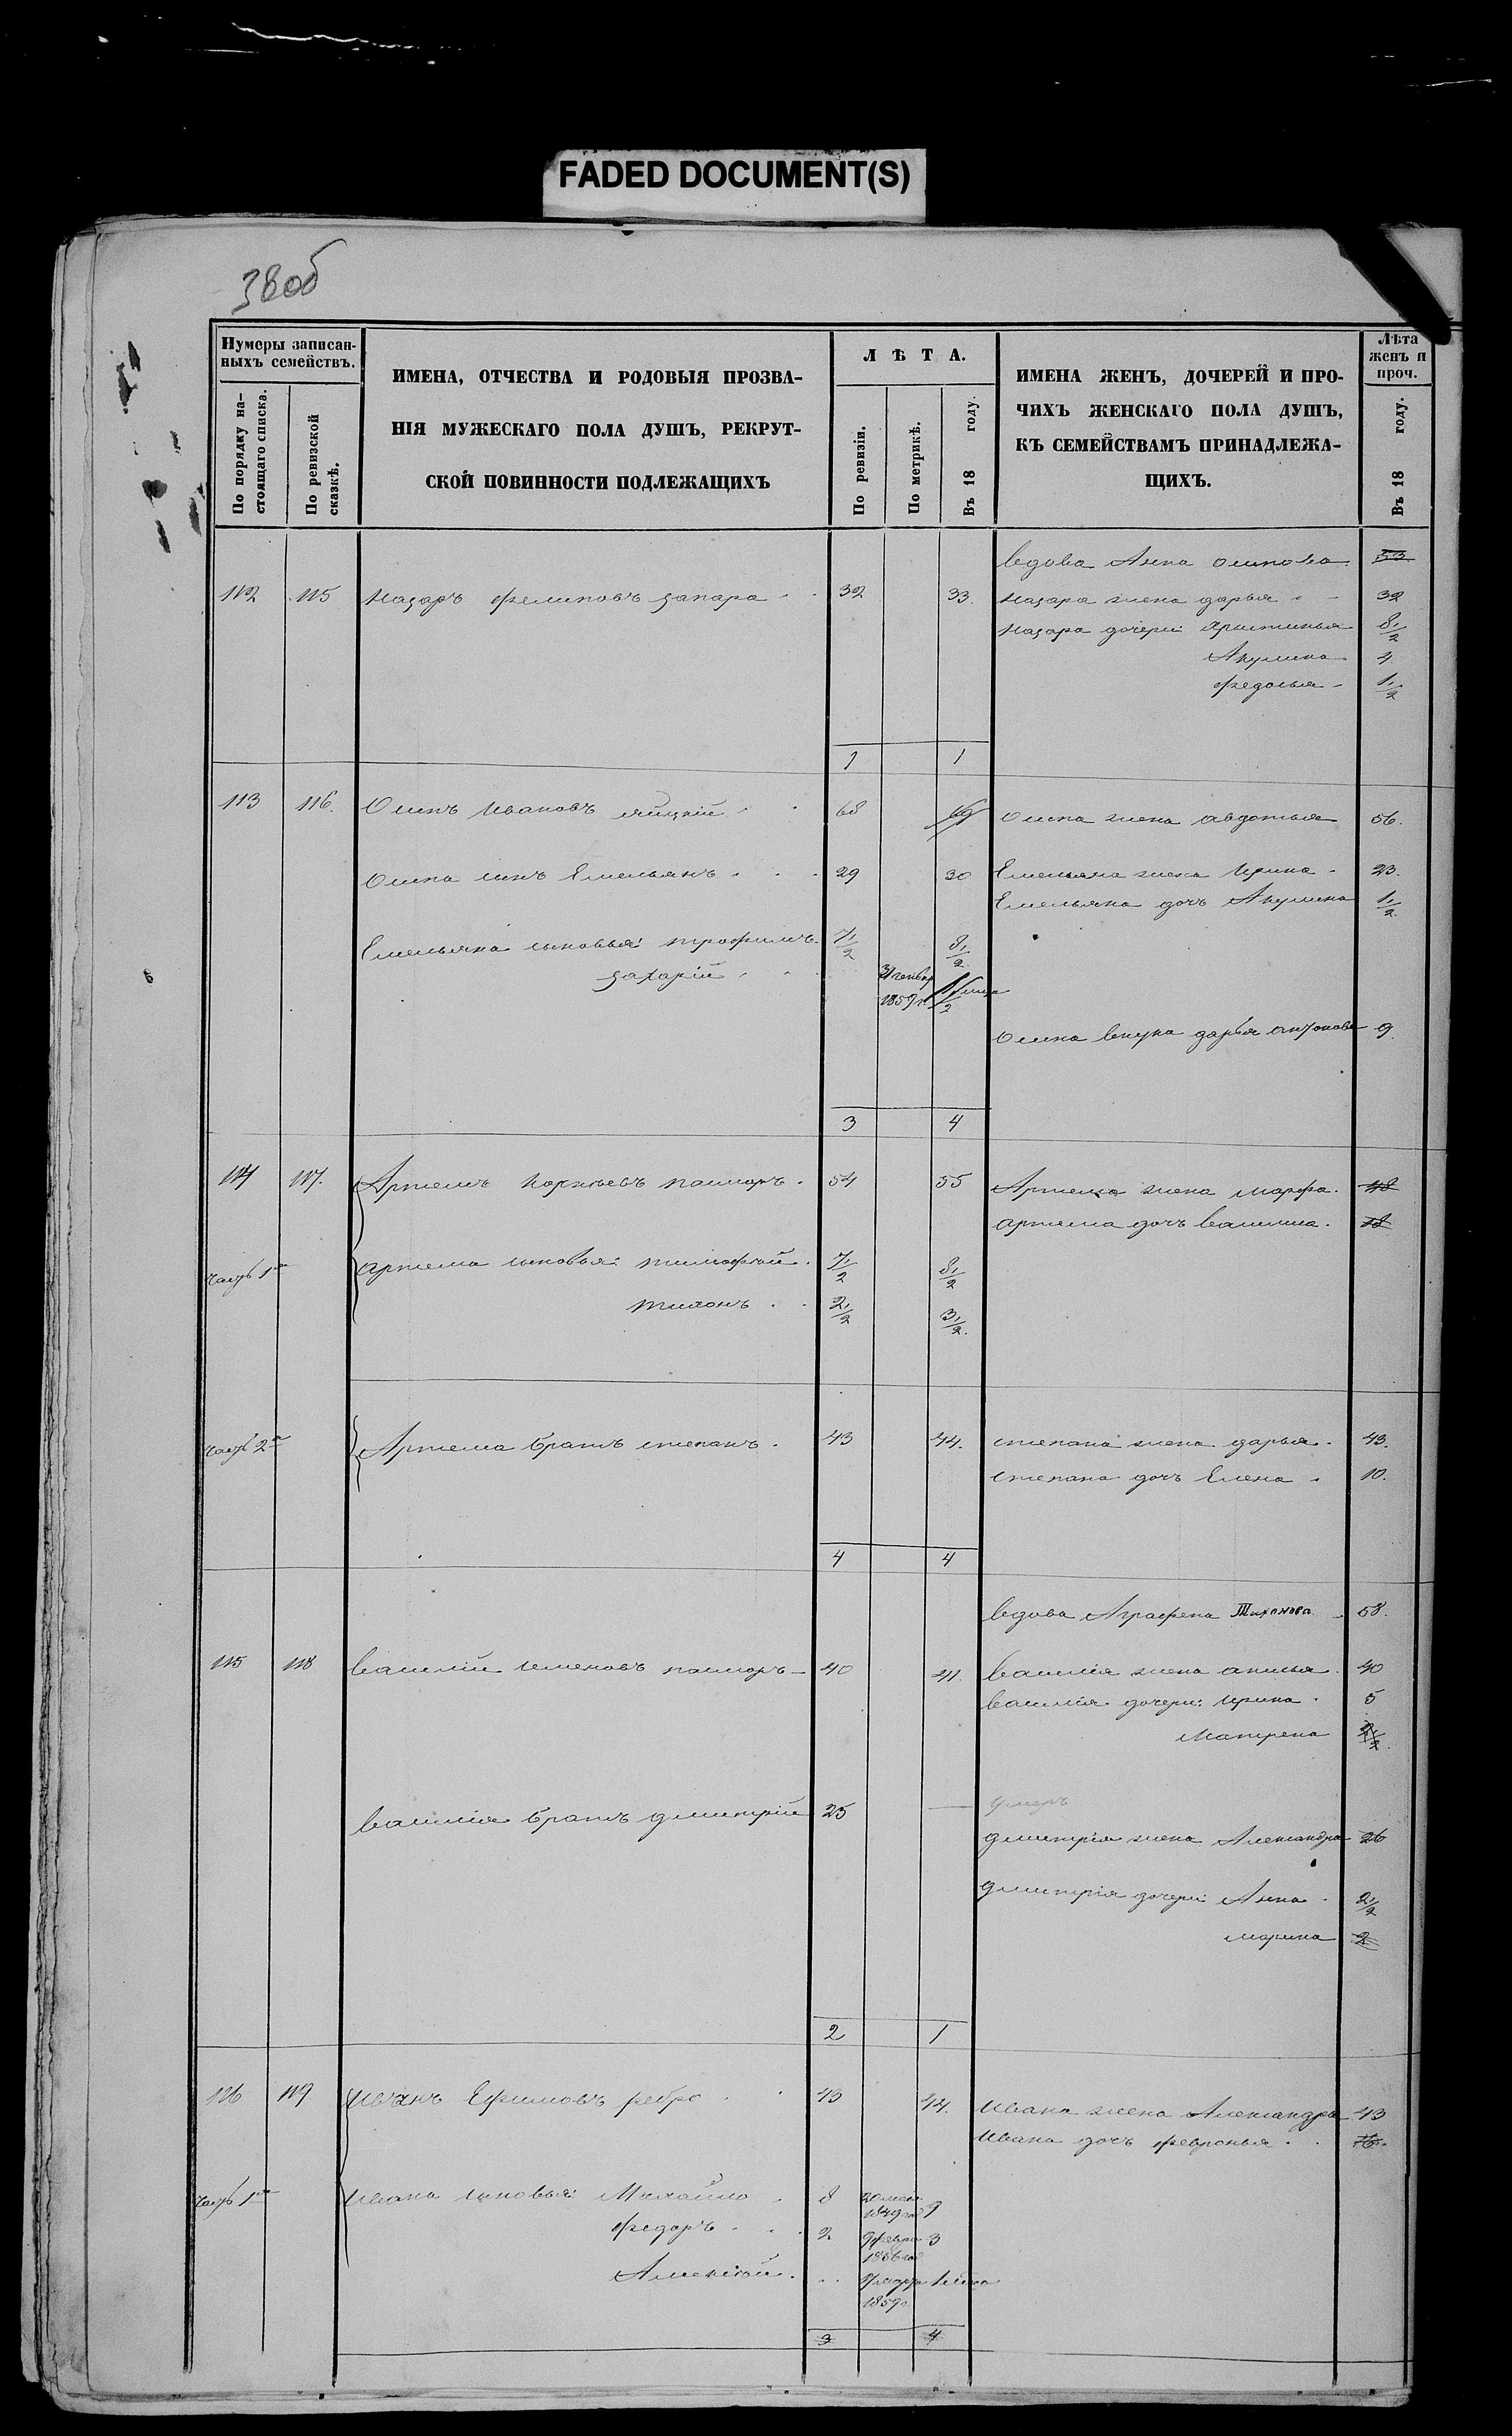 FADED DOCUMENT(S)
38об
Нумеры записан-
ныхъ семействъ.
По порядку на-
стоящаго списка.
По ревизской
сказкѣ.
ИМЕНА, ОТЧЕСТВА И РОДОВЫЯ ПРОЗВА-
НІЯ МУЖЕСКАГО ПОЛА ДУШЪ, РЕКРУТ-
СКОЙ ПОВИННОСТИ ПОДЛЕЖАЩИХЪ
ЛѢТА.
По ревизіи.
По метрикѣ.
Въ 18 году.
ИМЕНА ЖЕНЪ, ДОЧЕРЕЙ И ПРО-
ЧИХЪ ЖЕНСКАГО ПОЛА ДУШЪ,
КЪ СЕМЕЙСТВАМЪ ПРИНАДЛЕЖА-
ЩИХЪ.
Лѣта
женъ и
проч.
Въ 18 году.
вдова Анна осипова 53
112 115 назаръ филиповъ запара 32 33. назара жена дарья 32
назара дочери: христинья 8 1/2
Акулина 4
федосья 1 1/2
1 1
113 116. Осипъ Ивановъ яицкій 68 69 осипа жена авдотья 56.
осипа сынъ Емельянъ 29 30 Емельяна жена Ирина 23.
Емельяна дочъ Акулина 1 1/2
Емельяна сыновья: трофимъ 7 1/2 8 1/2
захарій 31 генвар
1859 г.
осипа внука дарья антонова 9.
3 4
114 117. Артемъ Корнѣевъ пашоръ 54 55 Артема жена марфа 48
артема дочъ василиса 18
часть 1я артема сыновья: тимофѣй 7 1/2 8 1/2
тихонъ 2 1/2 3 1/2
часть 2я Артема братъ степанъ 43 44. степана жена дарья 43.
степана дочъ Елена 10.
4 4
вдова Аграфена Тихонова 58.
115 118 василій семеновъ пашоръ 40 41. василія жена анисья 40
василія дочери: Ирина 5
Матрена
умеръ
василія братъ дмитрій 25 —
дмитрія жена Александра 26
дмитрія дочери: Анна 2 1/2
марина 2
2 1
116 119 Иванъ Ефимовъ ребро 43 44. Ивана жена Александра 43
Ивана дочъ февронья 16.
часть 1я Ивана сыновья: Михайло 8 1849 9
федоръ 2 9 февра 3
1856
Алексѣй
1859г
3 4